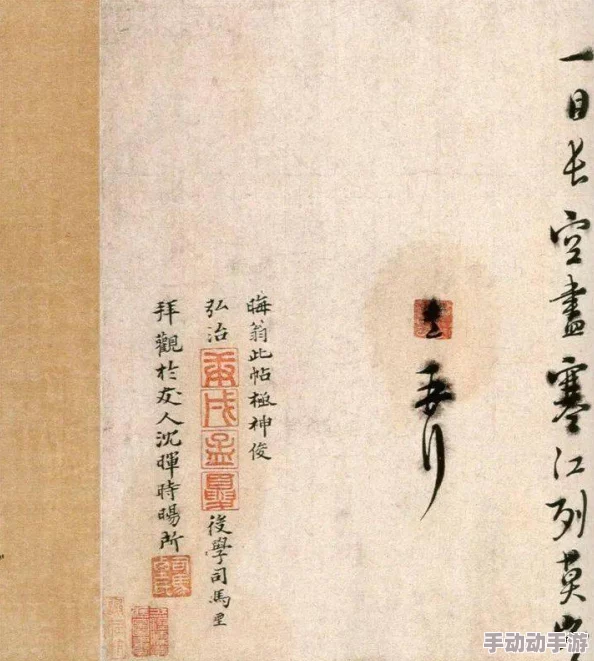 一日長空盡寒江列莫
晦翁此帖極神俊
弘治庚戌孟夏後學司馬垔
拜觀於友人沈暉時暘所
手动动手游